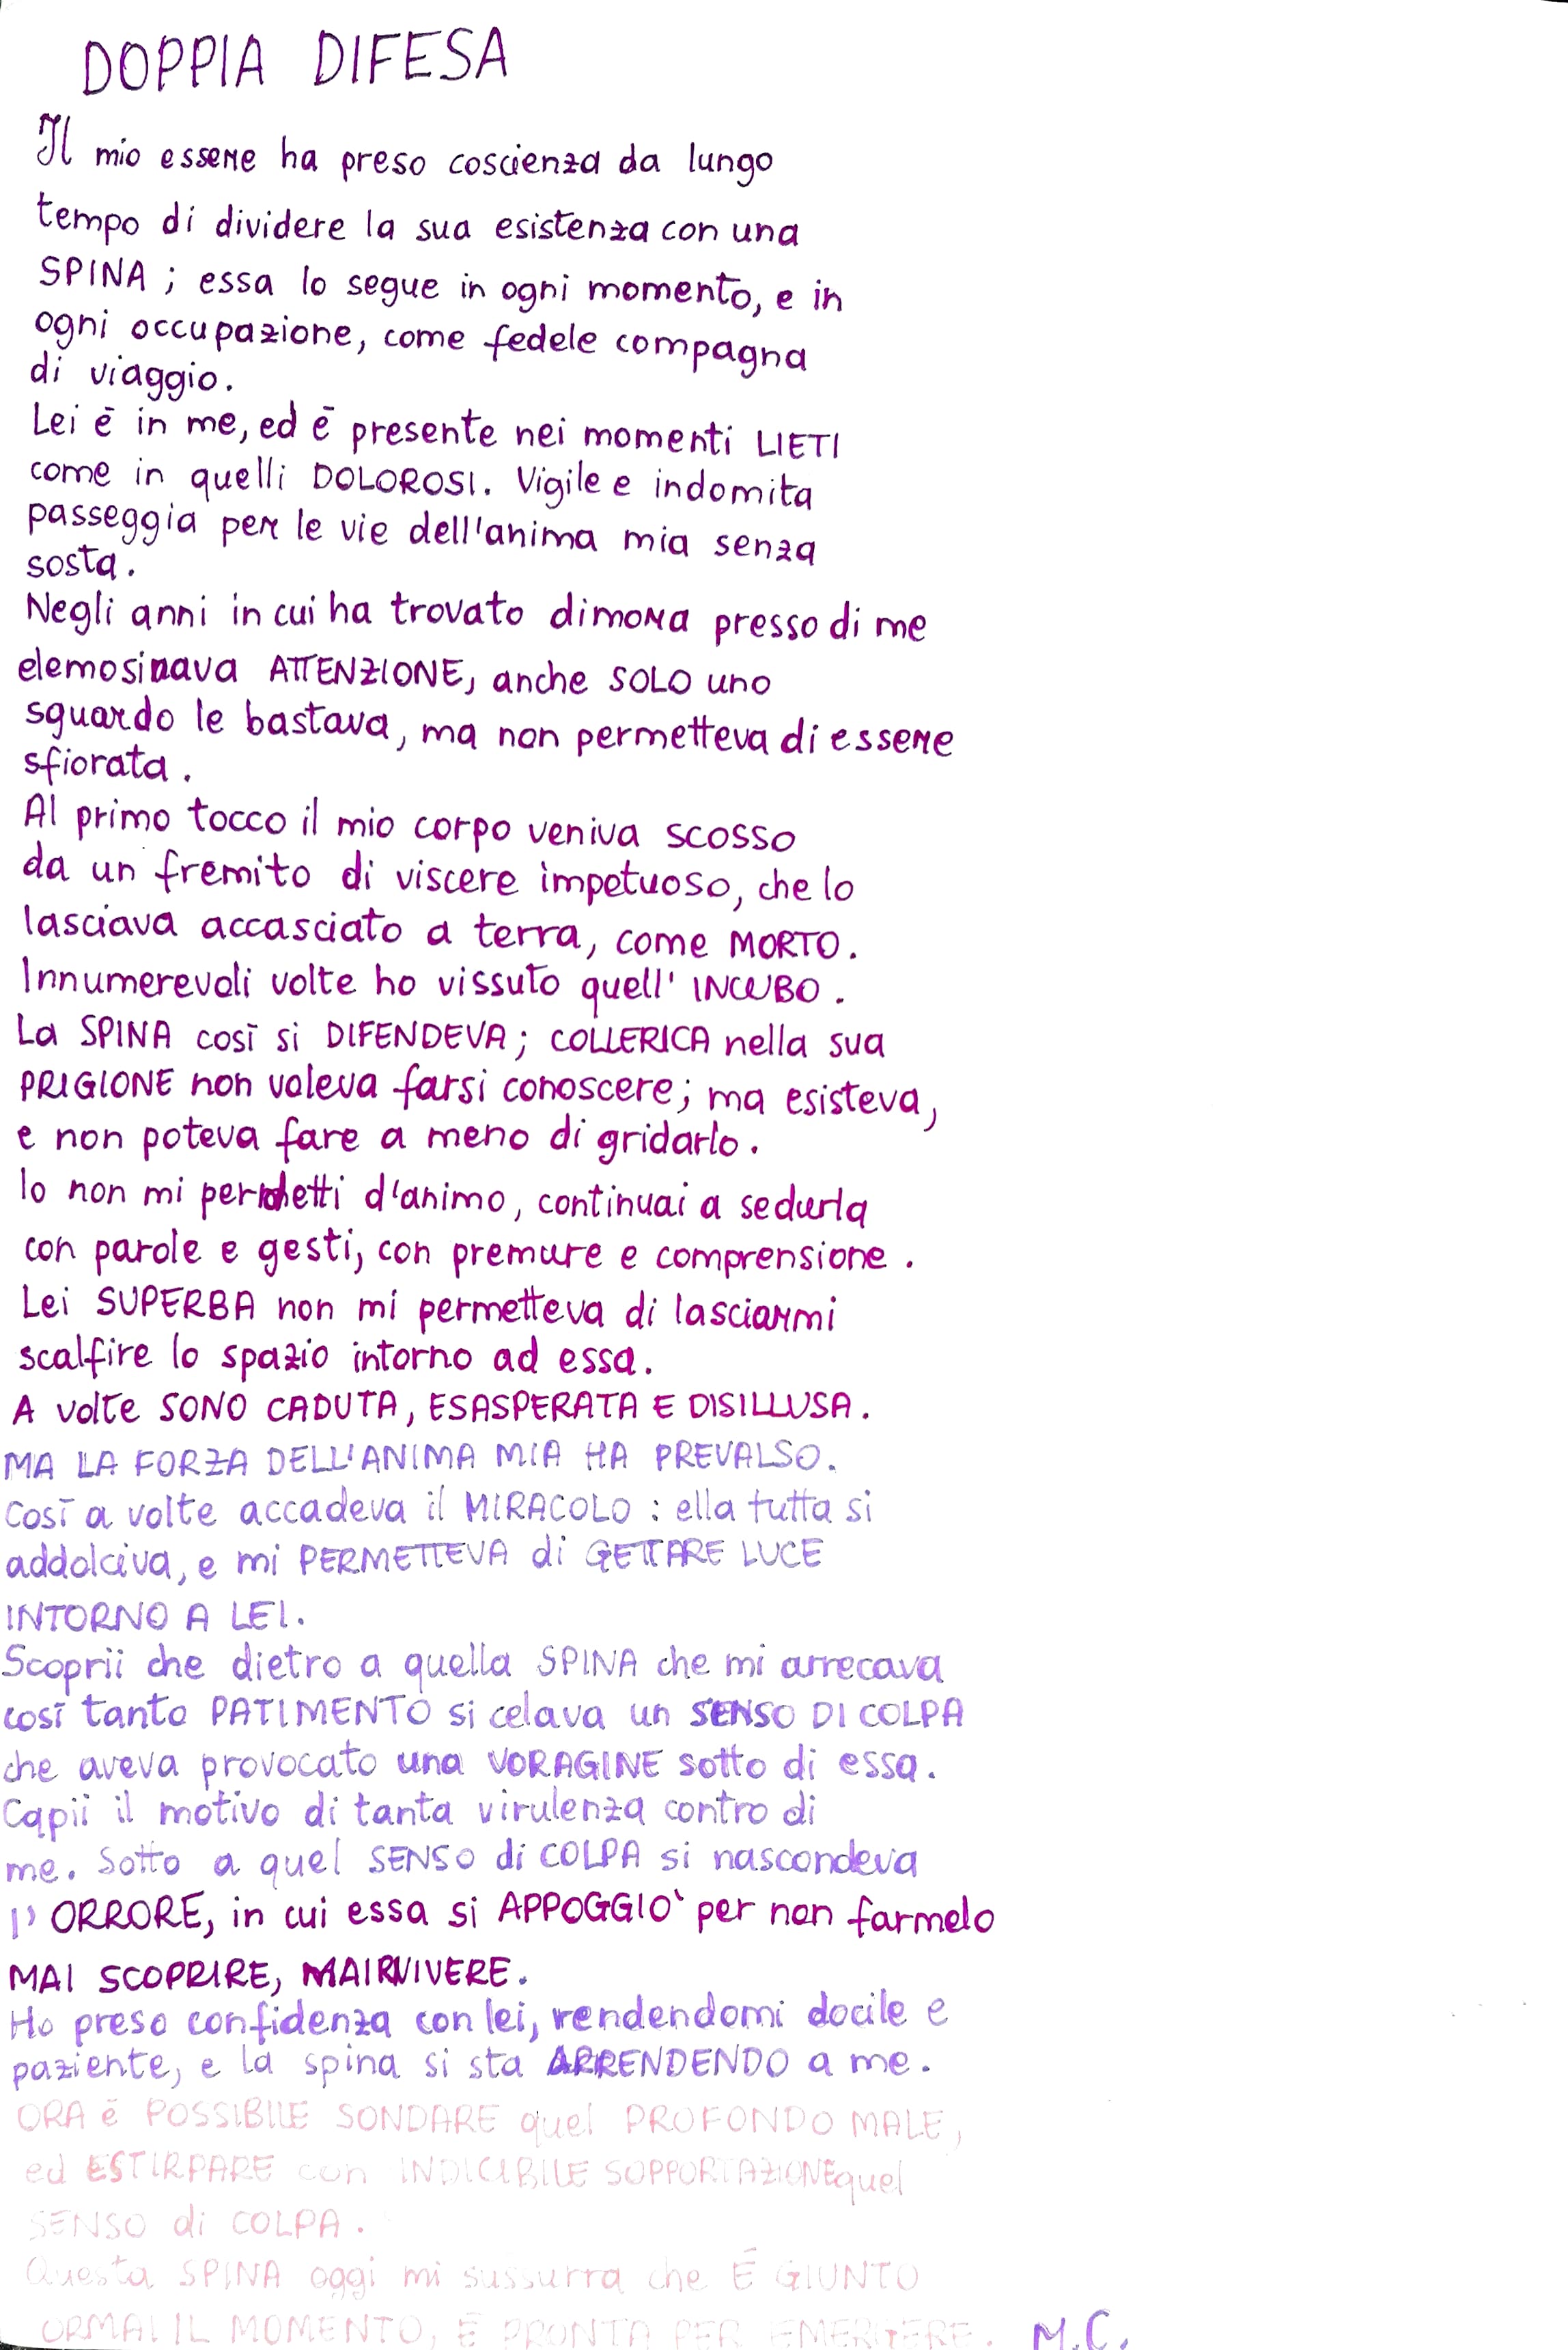 DOPPIA DIFESA
Il mio essere ha preso coscienza da lungo
tempo di dividere la sua esistenza con una
SPINA ; essa lo segue in ogni momento, e in
ogni occupazione, come fedele compagna
di viaggio.
Lei ē in me, ed ē presente nei momenti LIETI
come in quelli DOLOROSI. Vigile e indomita
passeggia per le vie dell'anima mia senza
sosta.
Negli anni in cui ha trovato dimora presso di me
elemosinava ATTENZIONE, anche SOLO uno
sguardo le bastava, ma non permetteva di essere
sfiorata.
Al primo tocco il mio corpo veniva scosso
da un fremito di viscere impetuoso, che lo
lasciava accasciato a terra, come MORTO.
Innumerevoli volte ho vissuto quell' INCUBO.
La SPINA cosī si DIFENDEVA; COLLERICA nella sua
PRIGIONE non voleva farsi conoscere; ma esisteva,
e non poteva fare a meno di gridarlo.
Io non mi perdetti d'animo, continuai a sedurla
con parole e gesti, con premure e comprensione.
Lei SUPERBA non mi permetteva di lasciarmi
scalfire lo spazio intorno ad essa.
A volte SONO CADUTA, ESASPERATA E DISILLUSA.
MA LA FORZA DELL'ANIMA MIA HA PREVALSO.
Cosī a volte accadeva il MIRACOLO : ella tutta si
addolciva, e mi PERMETTEVA di GETTARE LUCE
INTORNO A LEI.
Scoprii che dietro a quella SPINA che mi arrecava
cosī tanto PATIMENTO si celava un SENSO DI COLPA
che aveva provocato una VORAGINE sotto di essa.
Capii il motivo di tanta virulenza contro di
me. Sotto a quel SENSO di COLPA si nascondeva
l'ORRORE, in cui essa si APPOGGIO' per non farmelo
MAI SCOPRIRE, MAI RIVIVERE.
Ho preso confidenza con lei, rendendomi docile e
paziente, e la spina si sta ARRENDENDO a me.
ORA ē POSSIBILE SONDARE quel PROFONDO MALE,
ed ESTIRPARE con INDICIBILE SOPPORTAZIONE quel
SENSO di COLPA.
Questa SPINA oggi mi sussurra che Ē GIUNTO
ORMAI IL MOMENTO, Ē PRONTA PER EMERGERE. M.C.